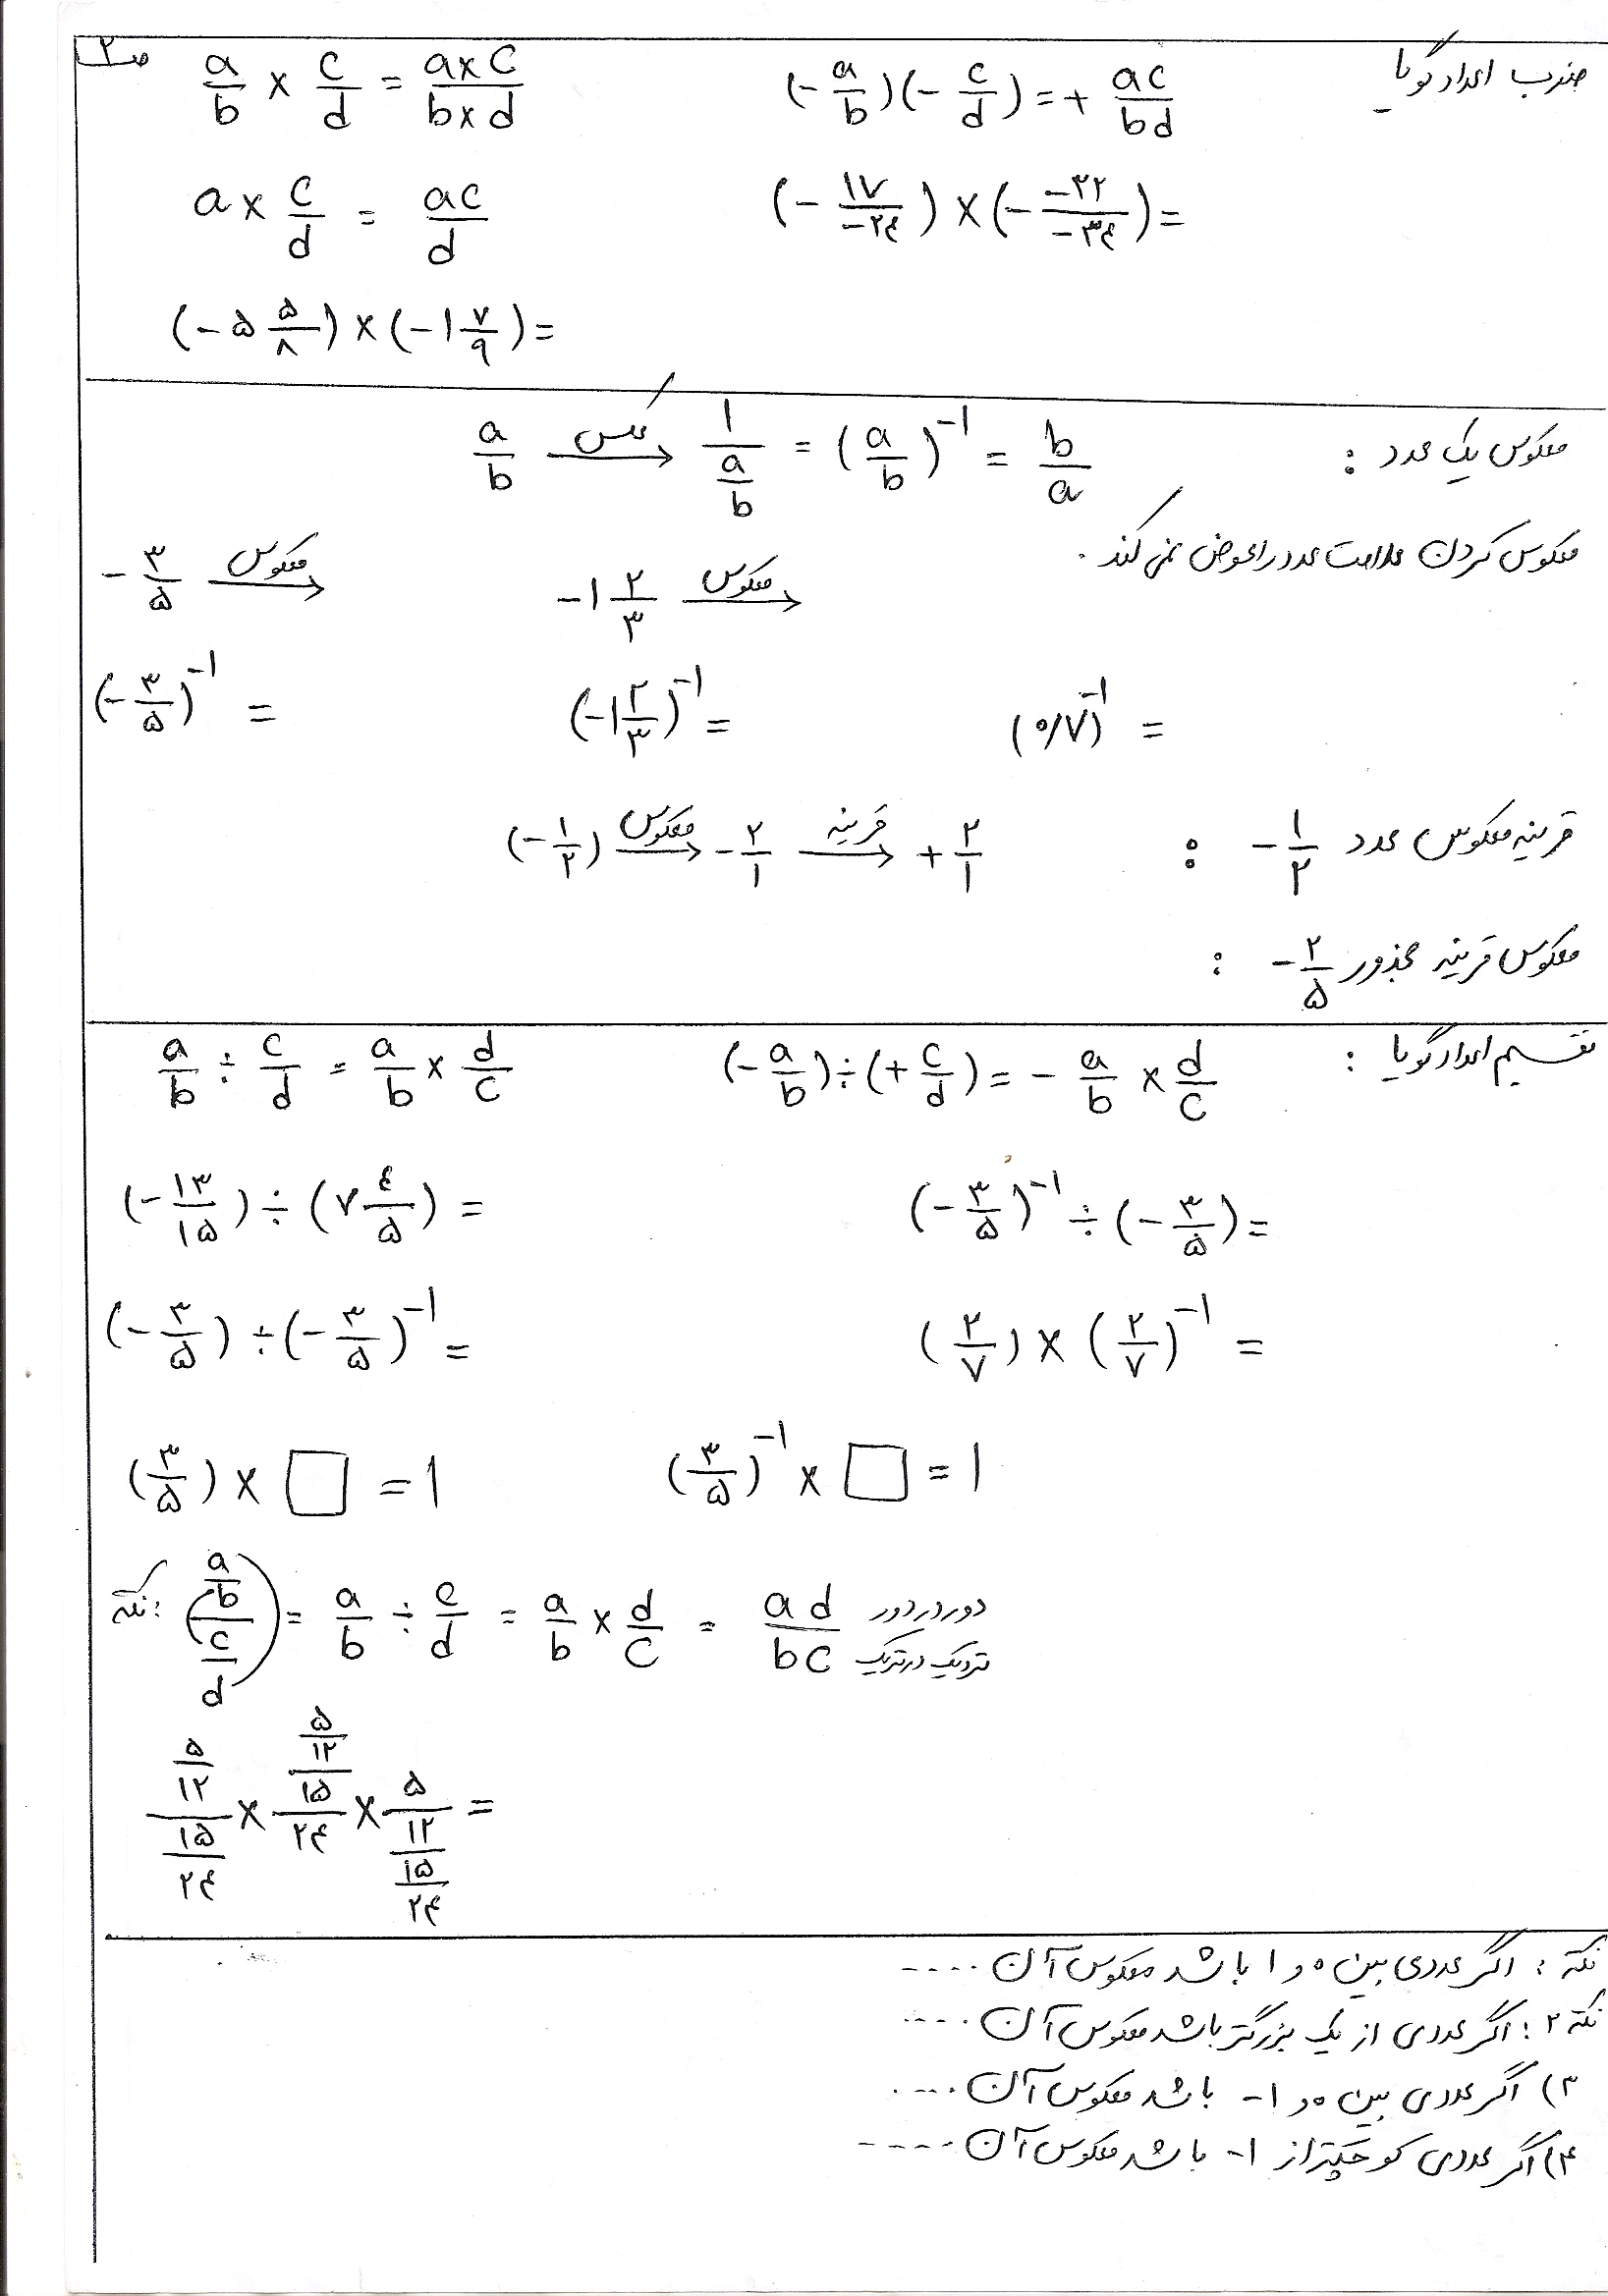 ضرب اعداد گویا (-a/b)(-c/d) = + ac/bd a/b × c/d = a×c/b×d ص۲
(- ۱۷/-۲۴) × (- -۳۲/-۳۴) = a × c/d = ac/d
(-۵ ۵/۸) × (-۱ ۷/۹) =
معکوس یک عدد : a/b عکس → 1/(a/b) = (a/b)^-1 = b/a
معکوس کردن علامت عدد را عوض نمی کند .
-۳/۵ معکوس → -۱ ۲/۳ معکوس →
(-۳/۵)^-۱ = (-۱ ۲/۳)^-۱ = (۰/۷)^-۱ =
قرینه معکوس عدد -۱/۲ : (-۱/۲) معکوس → -۲/۱ قرینه → +۲/۱
معکوس قرینه مجذور -۲/۵ :
تقسیم اعداد گویا : (-a/b) ÷ (+c/d) = - a/b × d/c a/b ÷ c/d = a/b × d/c
(-۱۳/۱۵) ÷ (۷ ۴/۵) = (-۳/۵)^-۱ ÷ (-۳/۵) =
(-۳/۵) ÷ (-۳/۵)^-۱ = (۲/۷) × (۲/۷)^-۱ =
(۳/۵) × □ = ۱ (۳/۵)^-۱ × □ = ۱
نکته : ((a/b)/(c/d)) = a/b ÷ c/d = a/b × d/c = ad/bc دور در دور
نزدیک در نزدیک
(۵/۱۲)/(۱۵/۲۴) × ((۵/۱۲)/۱۵)/۲۴ × ۵/(۱۲/(۱۵/۲۴)) =
نکته : اگر عددی بین ۰ و ۱ باشد معکوس آن ....
نکته ۲ : اگر عددی از یک بزرگتر باشد معکوس آن ....
۳) اگر عددی بین ۰ و -۱ باشد معکوس آن ....
۴) اگر عددی کوچکتر از -۱ باشد معکوس آن -----